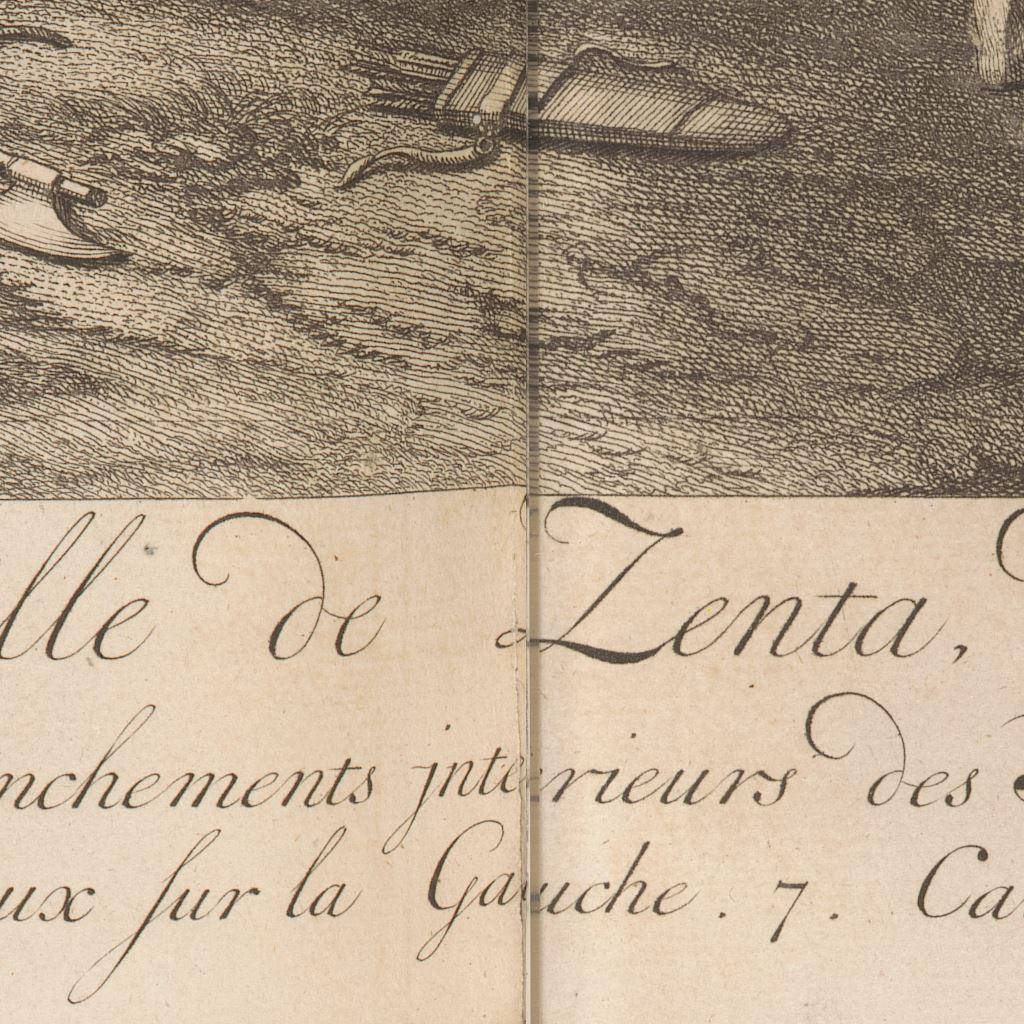 lle de Zenta,
nchements jnterieurs des
ux sur la Gauche. 7. Ca